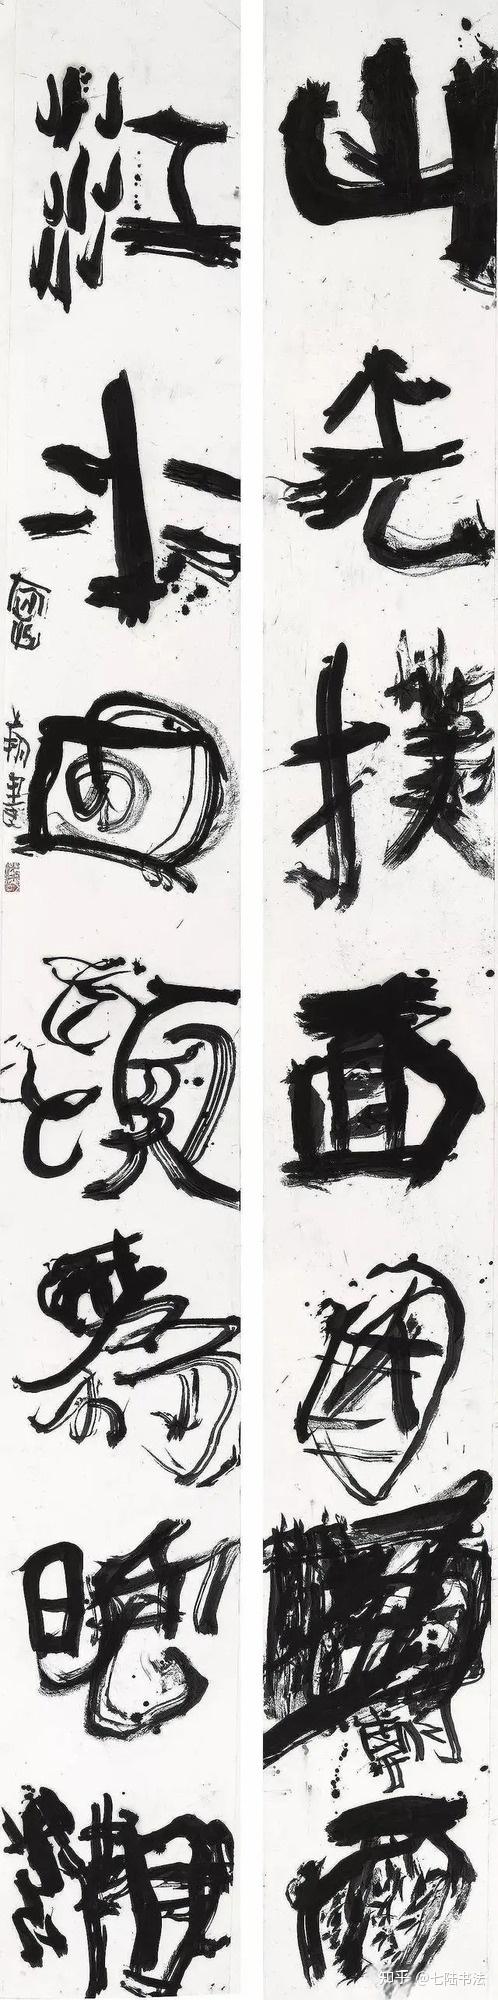 山光撲面因朝雨
江水回頭為晚潮
曾翔書
知乎 @七陆书法